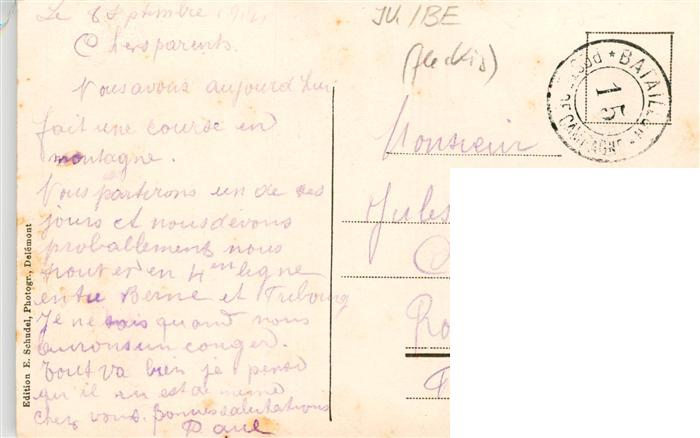 Le 8 Septembre 191
Chers parents.
Nous avons aujourd hui
fait une course en
montagne.
Nous partirons un de ces
jours et nous devons
probablement nous
trouver en 4em ligne
entre Berne et Fribourg
Je ne sais quand nous
aurons un conger.
Tout va bien je pense
qu il en est de meme
chez vous. Bonnes salutations
Paul
Edition E. Schudel, Photogr., Delémont
JU. / BE
(fleckig)
POSTE DE CAMPAGNE * BATAILLON
15
Monsieur
Jules